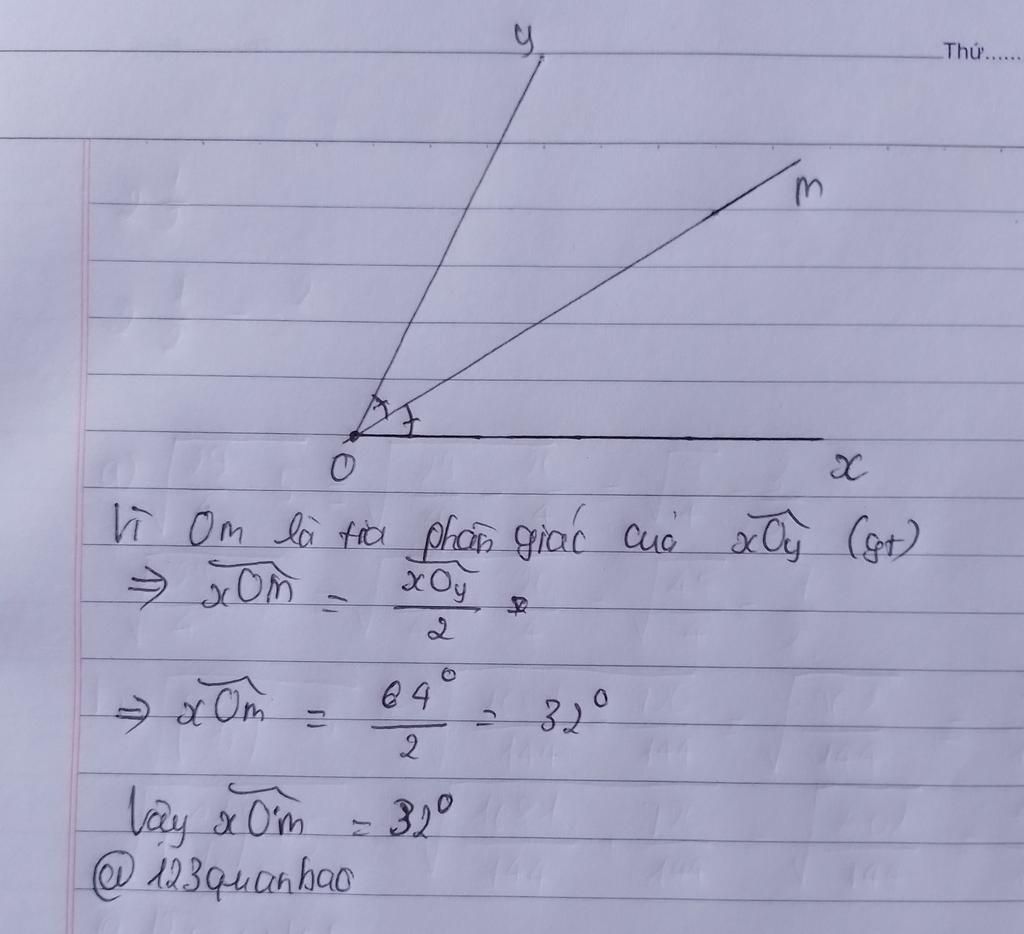 y
Thứ......
m
O
x
Vì Om là tia phân giác của xOy (gt)
⇒ xOm = xOy / 2
⇒ xOm = 64° / 2 = 32°
Vậy xOm = 32°
@123quanbao